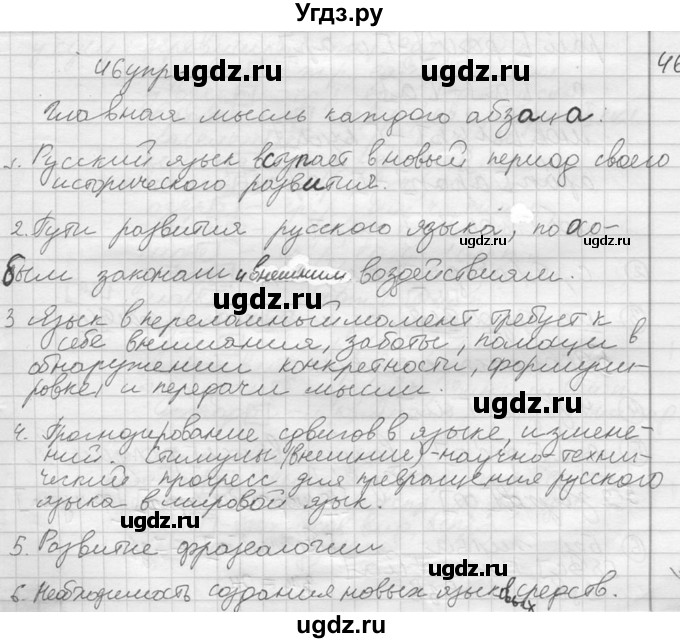 Угдз.ру
46упр
46
Главная мысль каждого абзаца:
1. Русский язык вступает в новый период своего
исторического развития.
2. Пути развития русского языка, по осо-
бым законам и внешним воздействиям.
3 Язык в переломный момент требует к
себе внимания, заботы, помощи в
обнаружении конкретности, формули-
ровке и передачи мысли.
4. Прогнозирование сдвигов в языке, измене-
ний. Стимулы (внешние)-научно-техни-
ческий прогресс для превращения русского
языка в мировой язык.
5. Развитие фразеологии
6. Необходимость создания новых языковых средств.
ugdz.ru
ugdz.ru
ugdz.ru
ugdz.ru
ugdz.ru
ugdz.ru
ugdz.ru
ugdz.ru
ugdz.ru
Угдз.ру